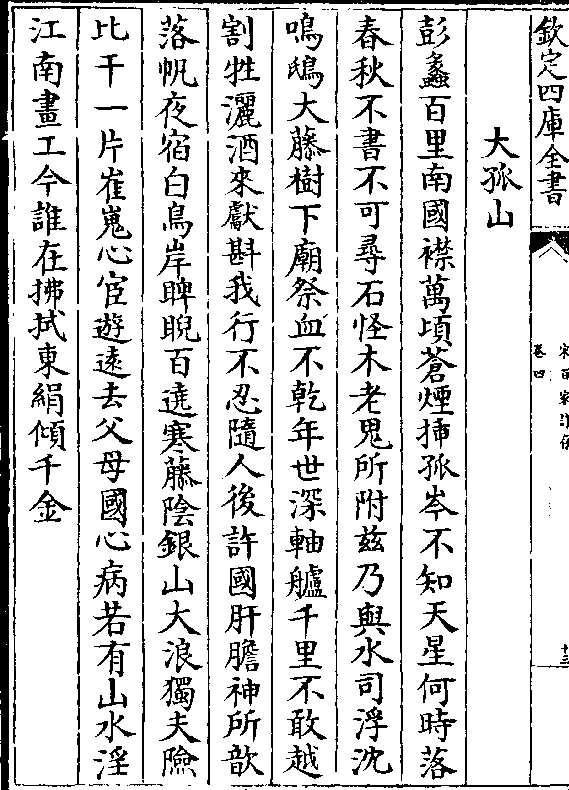 欽定四庫全書
卷四
大孤山
彭蠡百里南國襟萬頃蒼煙插孤岑不知天星何時落
春秋不書不可尋石怪木老鬼所附茲乃與水司浮沈
鳴鴟大藤樹下廟祭血不乾年世深軸艫千里不敢越
割牲灑酒來獻斟我行不忍隨人後許國肝膽神所歆
落帆夜宿白鳥岸睥睨百遶寒藤陰銀山大浪獨夫險
比干一片崔嵬心宦遊遠去父母國心病若有山水淫
江南畫工今誰在拂拭東絹傾千金